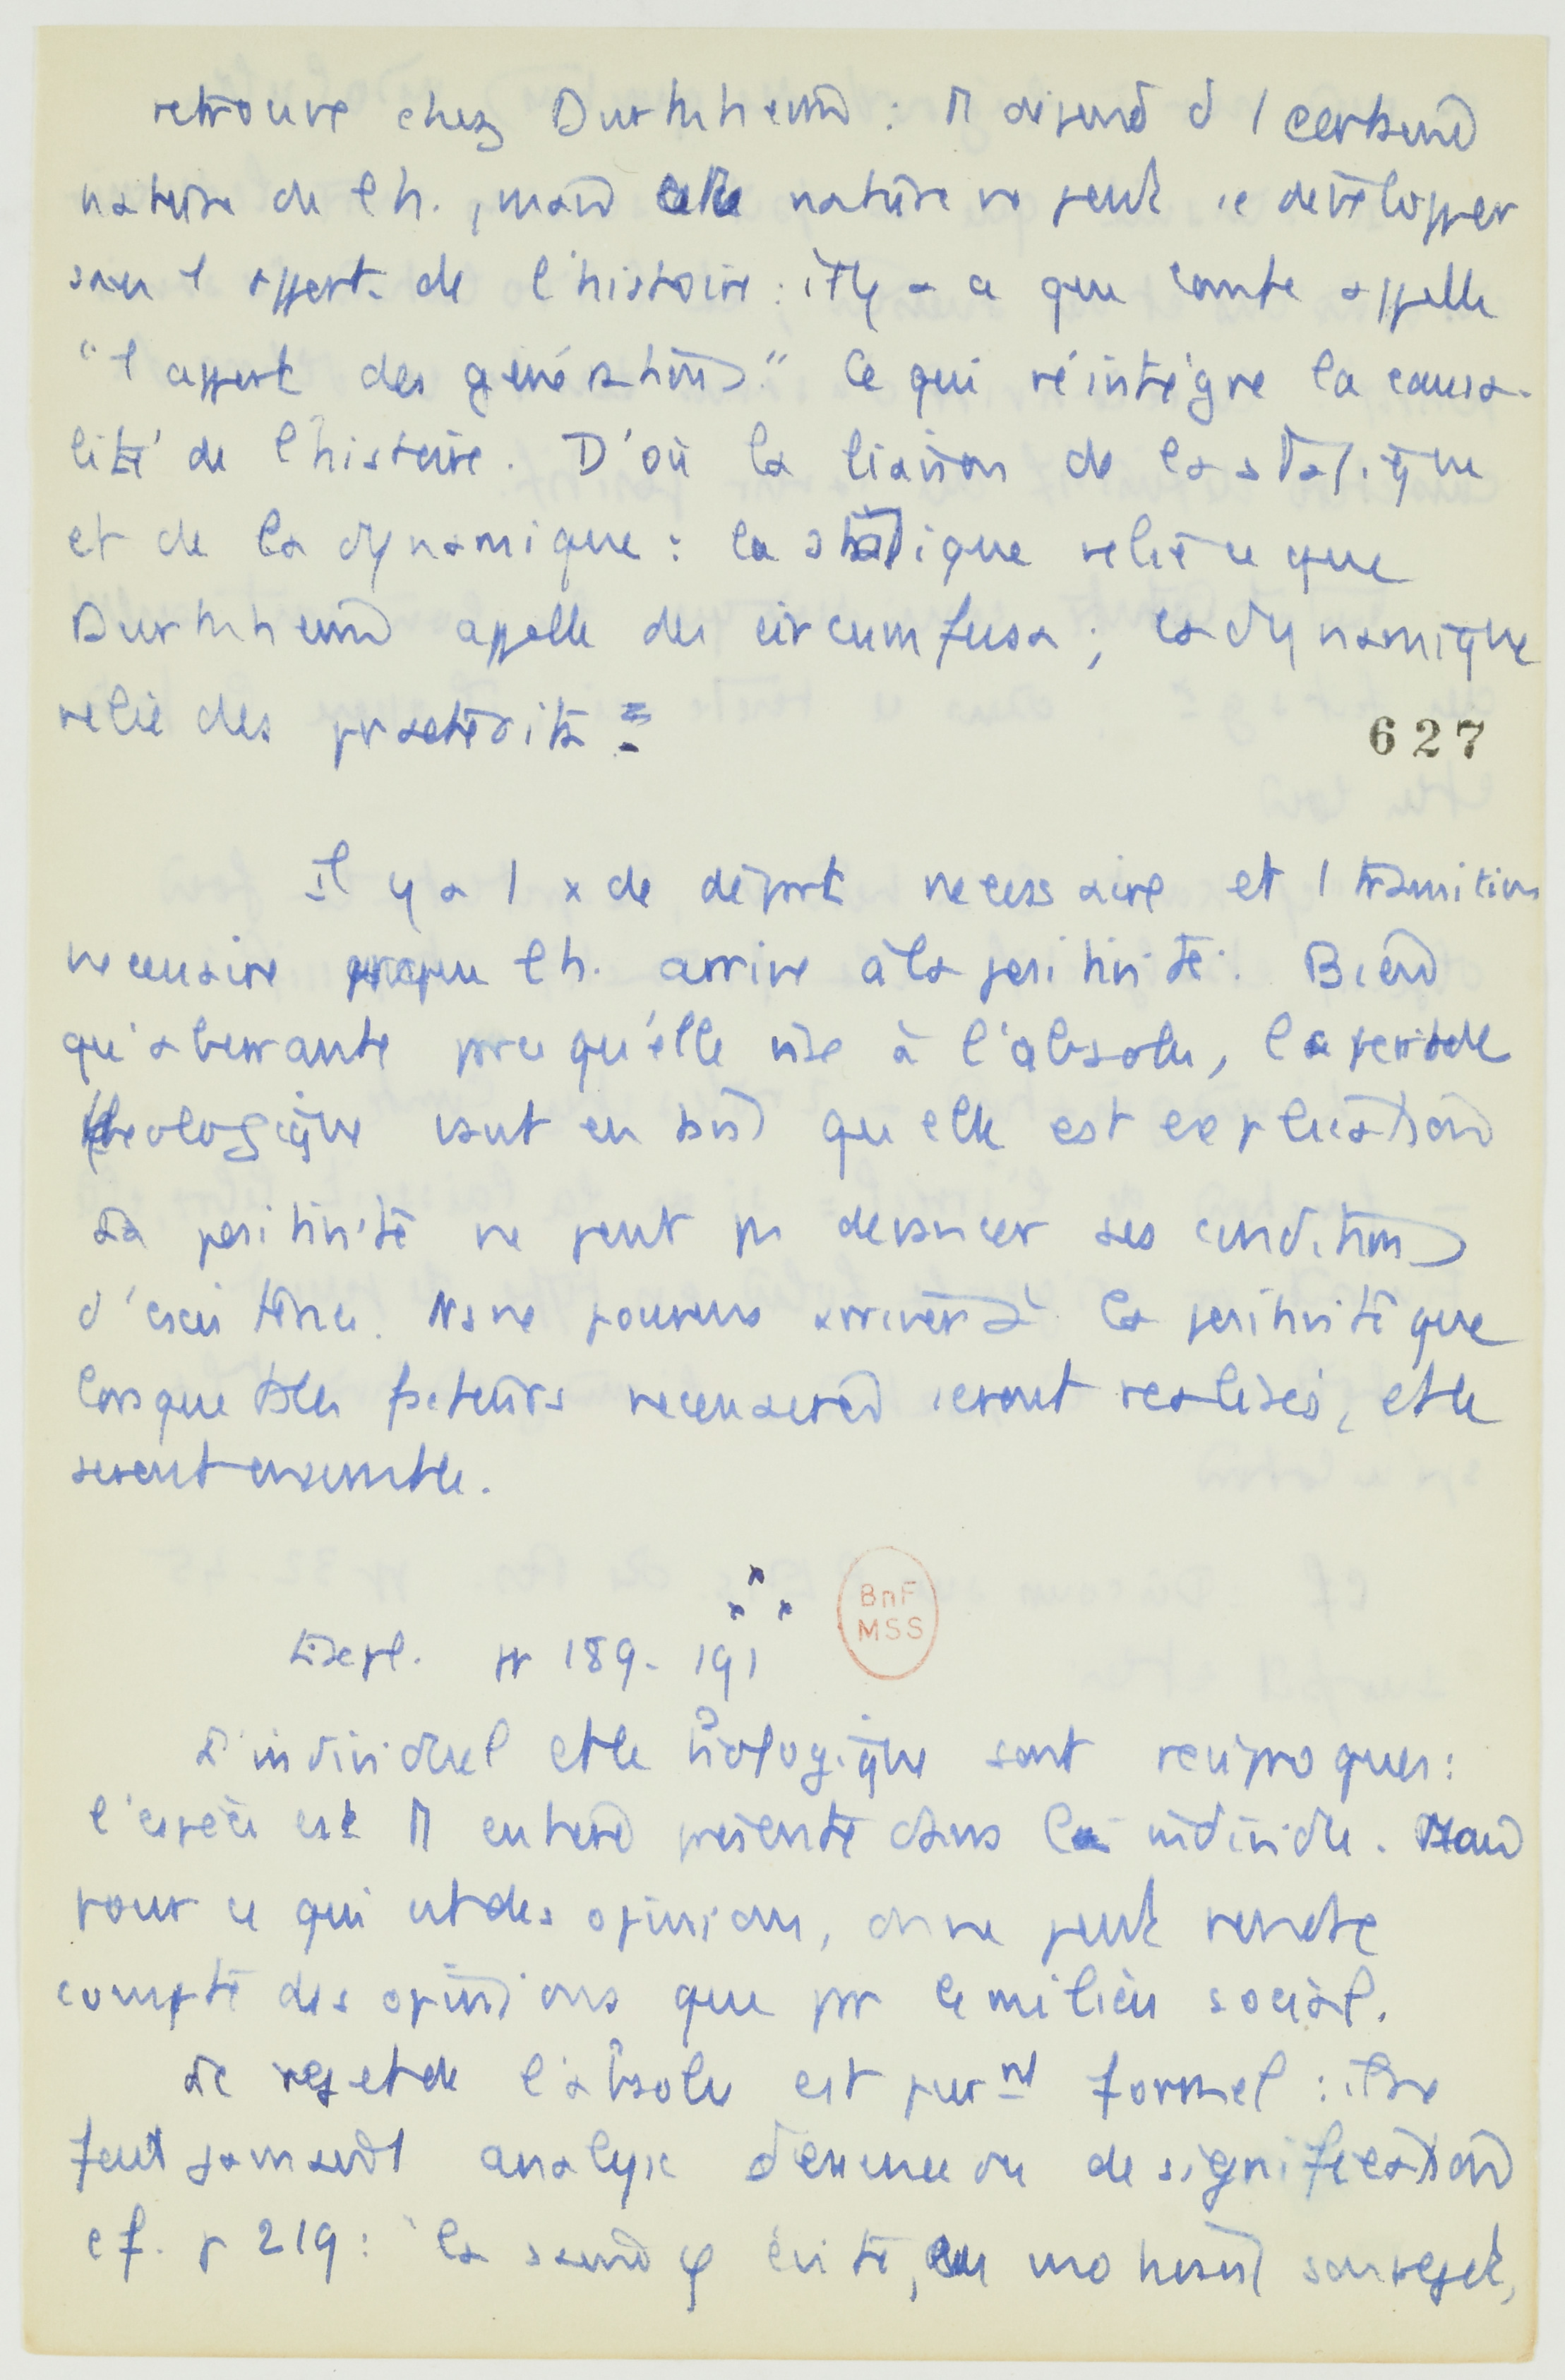 retrouve chez Durkheim : Il dépend d 1 certaine
nature de l'h., mais cette nature ne peut se développer
sans l'apport de l'histoire : il y a ce que Comte appelle
"l'apport des générations". Ce qui réintègre la causa-
lité de l'histoire. D'où la liaison de la statique
et de la dynamique : la statique relie ce que
Durkheim appelle des circumfusa ; la dynamique
relie des praeterita
627
Il y a 1 x de départ nécessaire et 1 transition
nécessaire pr que l'h. arrive à la positivité. Bien
qu'aberrante parce qu'elle vise à l'absolu, la période
théologique vaut en tant qu'elle est explication
La positivité ne peut pas devancer ses conditions
d'existence. Ns ne pouvons arriver à la positivité que
lorsque tous les facteurs nécessaires seront réalisés, et le
seront ensemble.
x x x
BnF
MSS
Expl. pp 189-191
L'individuel et le biologique sont réciproques :
l'espèce est tt entière présente dans l'individu. Mais
pour ce qui est des opinions, on ne peut rendre
compte des opinions que par le milieu social.
Le rejet de l'absolu est purnt formel : il ne
faut jamais d'analyse d'essence ou de signification
cf. p 219 : "la saine φ évite, en motivant son rejet,